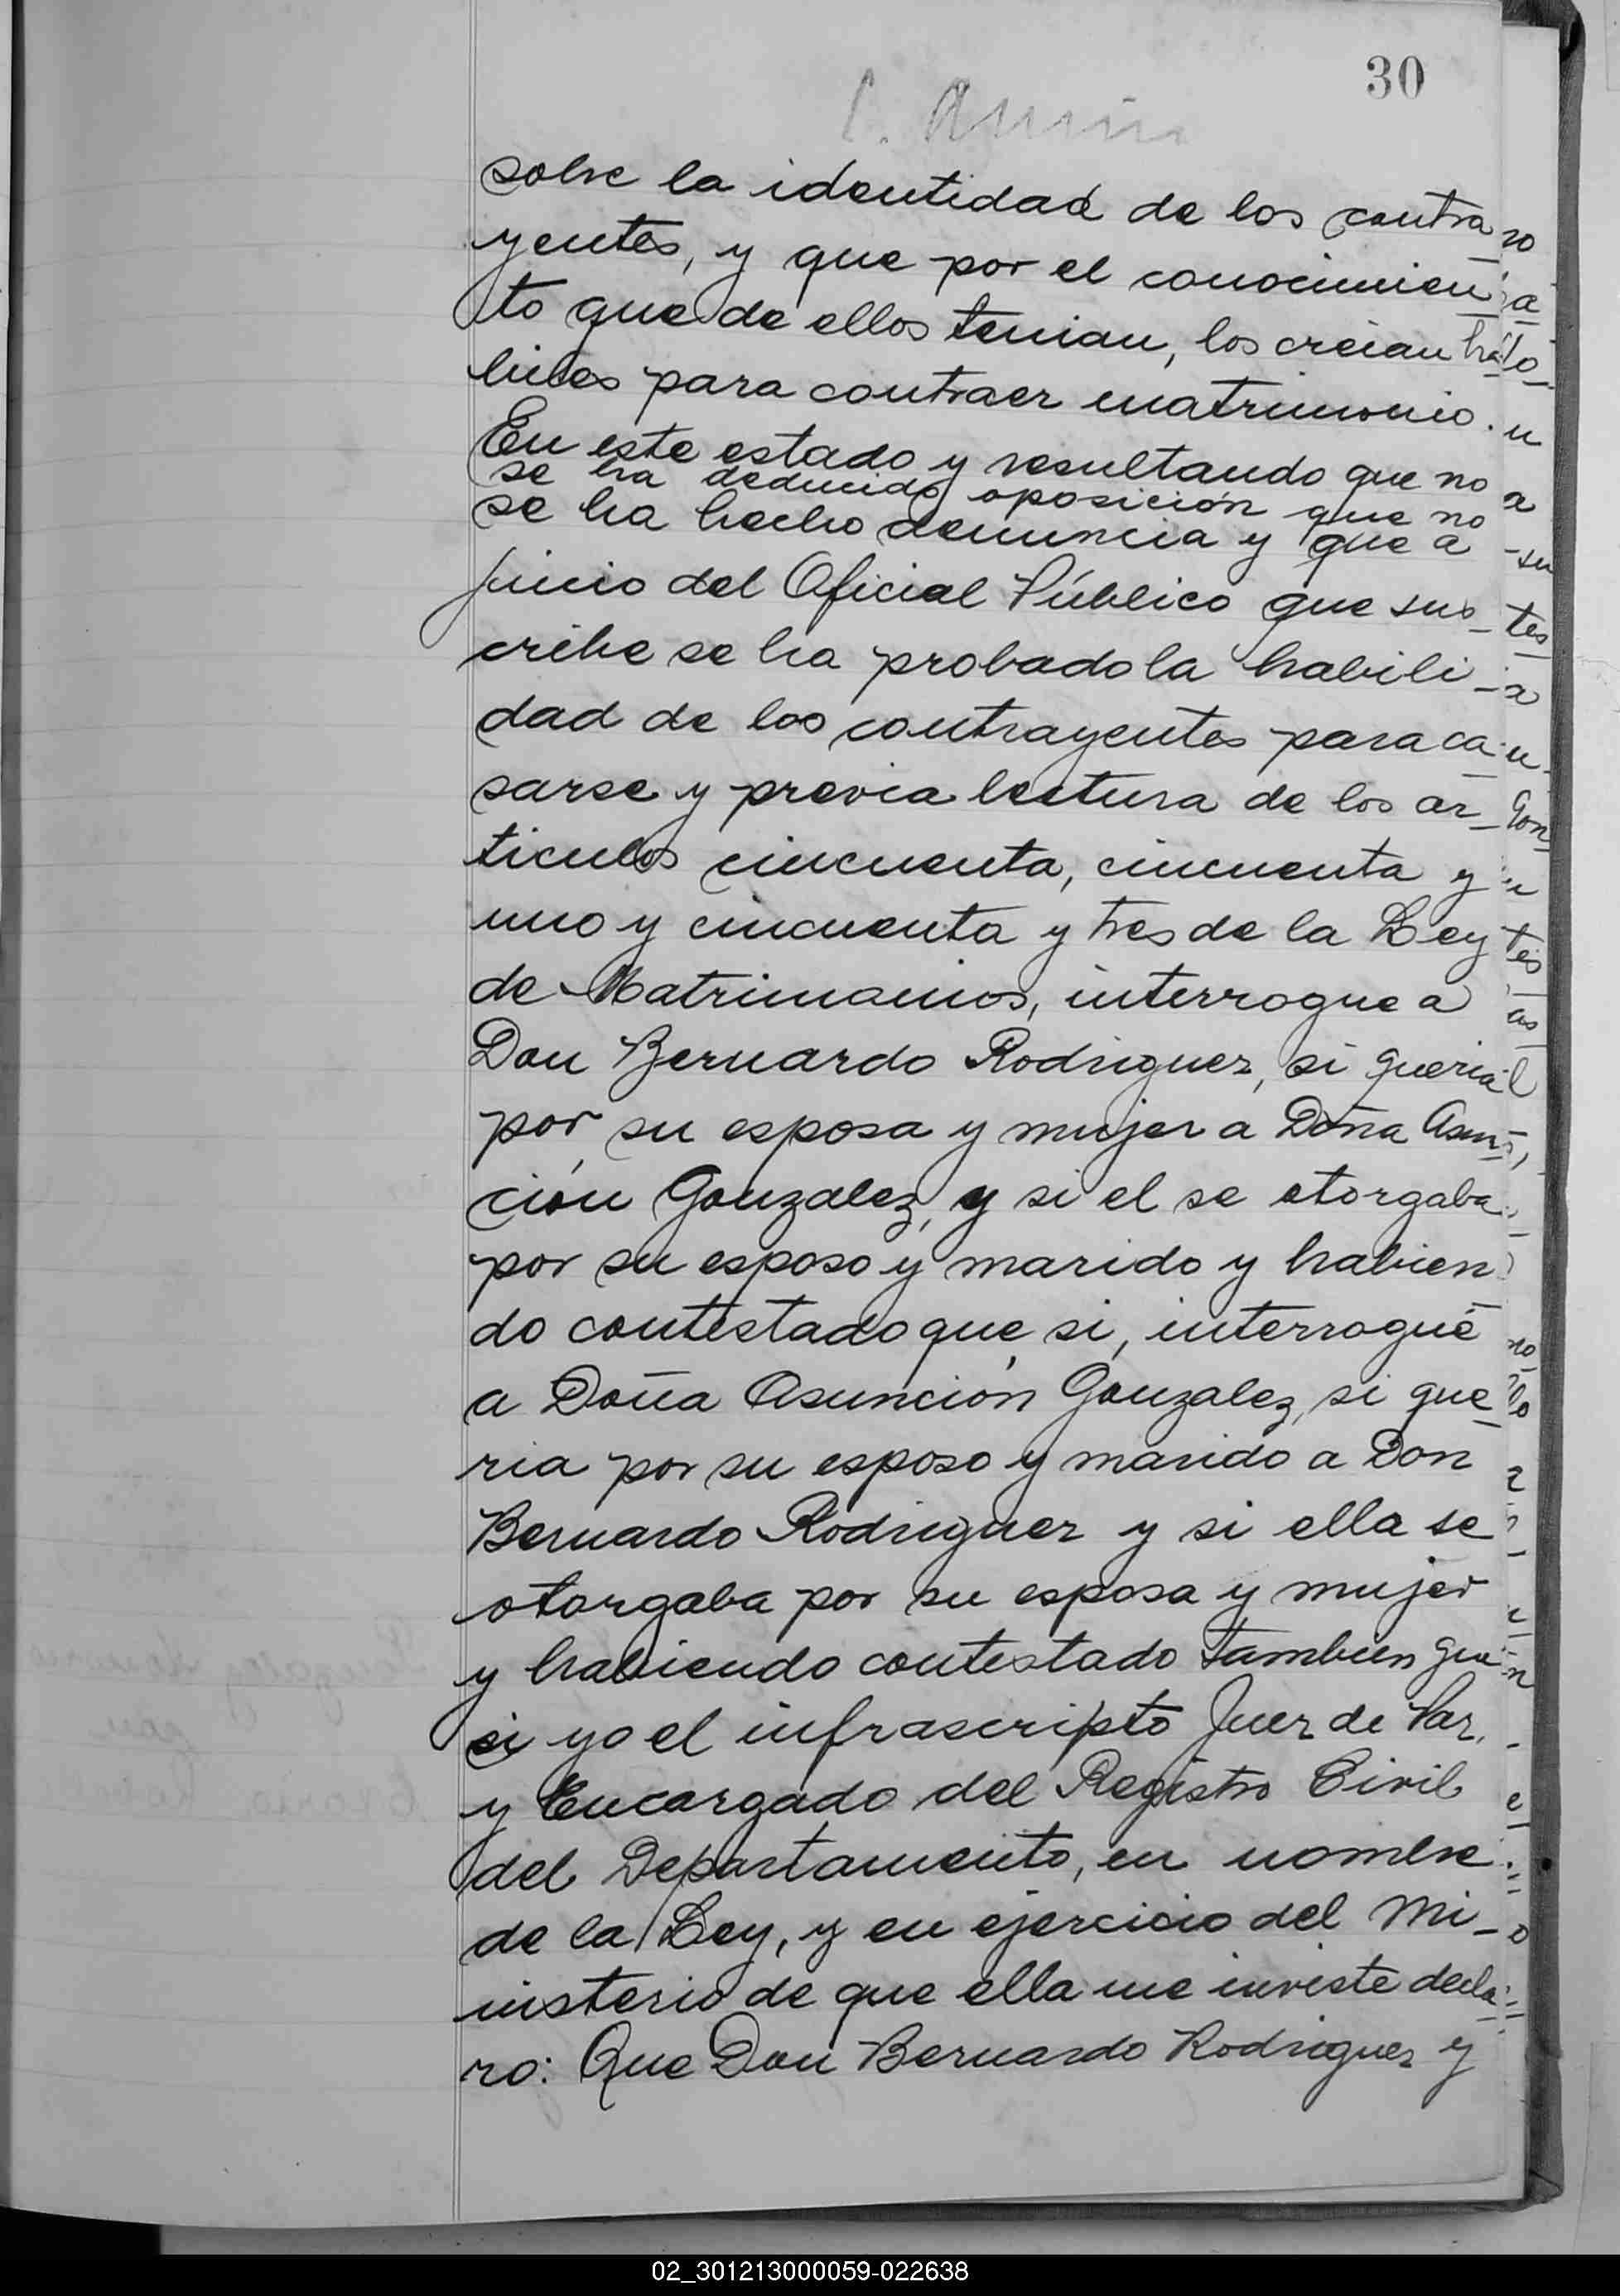 30
sobre la identidad de los contra
yentes, y que por el conocimien
to que de ellos tenian, los creian há
biles para contraer matrimonio.
En este estado y resultando que no
se ha deducido oposición que no
se ha hecho denuncia y que a
juicio del Oficial Público que sus_
cribe se ha probado la habili_
dad de los contrayentes para ca_
sarse y previa lectura de los ar_
ticulos cincuenta, cincuenta y
uno y cincuenta y tres de la Ley
de Matrimonios, interrogue a
Don Bernardo Rodriguez, si queria
por su esposa y mujer a Doña Asun_
ción Gonzalez, y si el se otorgaba
por su esposo y marido y habien_
do contestado que si, interrogué
a Doña Asunción Gonzalez, si que_
ria por su esposo y marido a Don
Bernardo Rodriguez y si ella se
otorgaba por su esposa y mujer
y habiendo contestado tambien que
si yo el infrascripto Juez de Paz,
y Encargado del Registro Civil
del Departamento, en nombre
de la Ley, y en ejercicio del Mi_
nisterio de que ella me inviste decla_
ro: Que Don Bernardo Rodriguez y
02_301213000059-022638